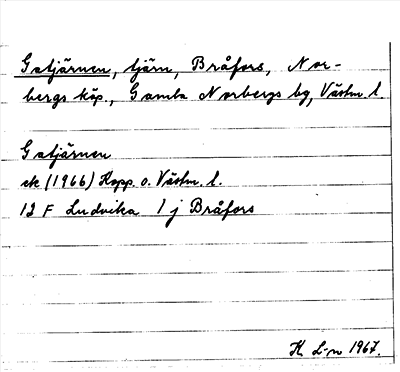 Gatjärnen, tjärn, Bråfors, Nor-
bergs köp., Gamla Norbergs bg, Västm. l.
Gatjärnen
ek (1966) Kopp. o. Västm. l.
12 F Ludvika 1 j Bråfors
K. L-n 1967.